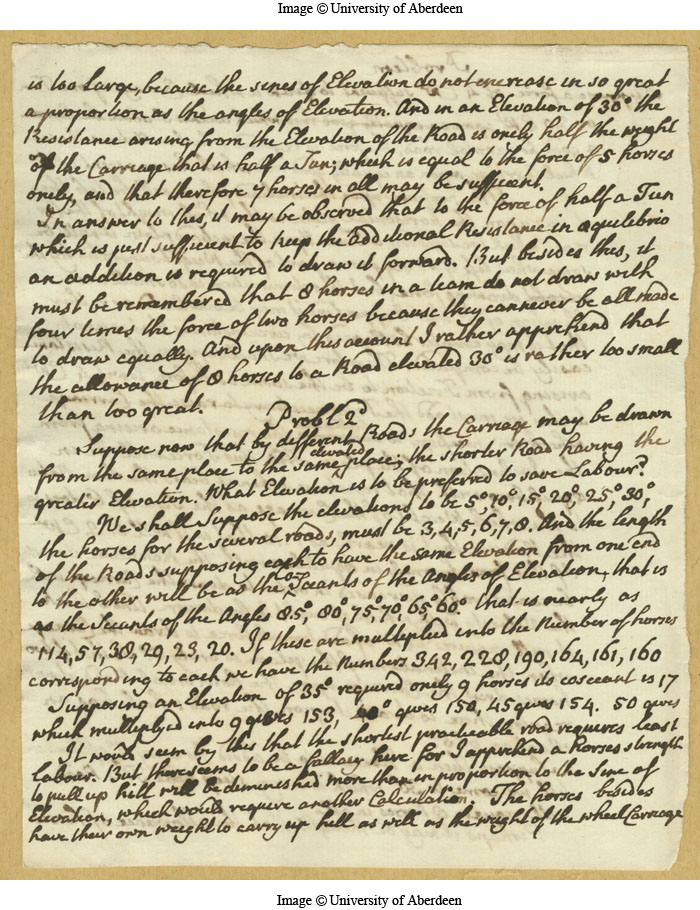 Image © University of Aberdeen
is too large, because the sines of Elevation do not increase in so great
a proportion as the angles of Elevation. And in an Elevation of 30° the
Resistance arising from the Elevation of the Road is onely half the weight
of the Carriage that is half a Tun; which is equal to the force of 5 horses
onely, and that therefore 7 horses in all may be sufficient.
In answer to this, it may be observed that to the force of half a Tun
which is just sufficient to keep the additional Resistance in æquilibrio
an addition is required to draw it forward. But besides this, it
must be remembered that 8 horses in a team do not draw with
four times the force of two horses because they can never be all made
to draw equally. And upon this account I rather apprehend that
the allowance of 8 horses to a Road elevated 30° is rather too small
than too great.
Probl 2d
Suppose now that by different elevated Roads the Carriage may be drawn
from the same place to the same place; the shorter Road having the
greater Elevation. What Elevation is to be preferred to save Labour?
We shall Suppose the elevations to be 5°, 10°, 15°, 20°, 25°, 30°,
the horses for the several roads, must be 3,4,5,6,7,8. And the length
of the Roads supposing each to have the same Elevation from one end
to the other will be as the Cosecants of the Angles of Elevation, that is
as the Secants of the Angles 85°, 80°, 75°, 70°, 65°, 60° that is nearly as
114, 57, 38, 29, 23, 20. If these are multiplied into the Number of horses
corresponding to each we have the Numbers 342, 228, 190, 164, 161, 160
Supposing an Elevation of 35° required onely 9 horses its cosecant is 17
which multiplyed into 9 gives 153, 40° gives 150, 45 gives 154. 50 gives
It would seem by this that the shortest practicable road requires least
Labour. But there seems to be a fallacy here for I apprehend a Horses strength
to pull up hill will be diminished more than in proportion to the Sine of
Elevation, which would require another Calculation. The horses besides
have their own weight to carry up hill as well as the weight of the wheel Carriage
Image © University of Aberdeen